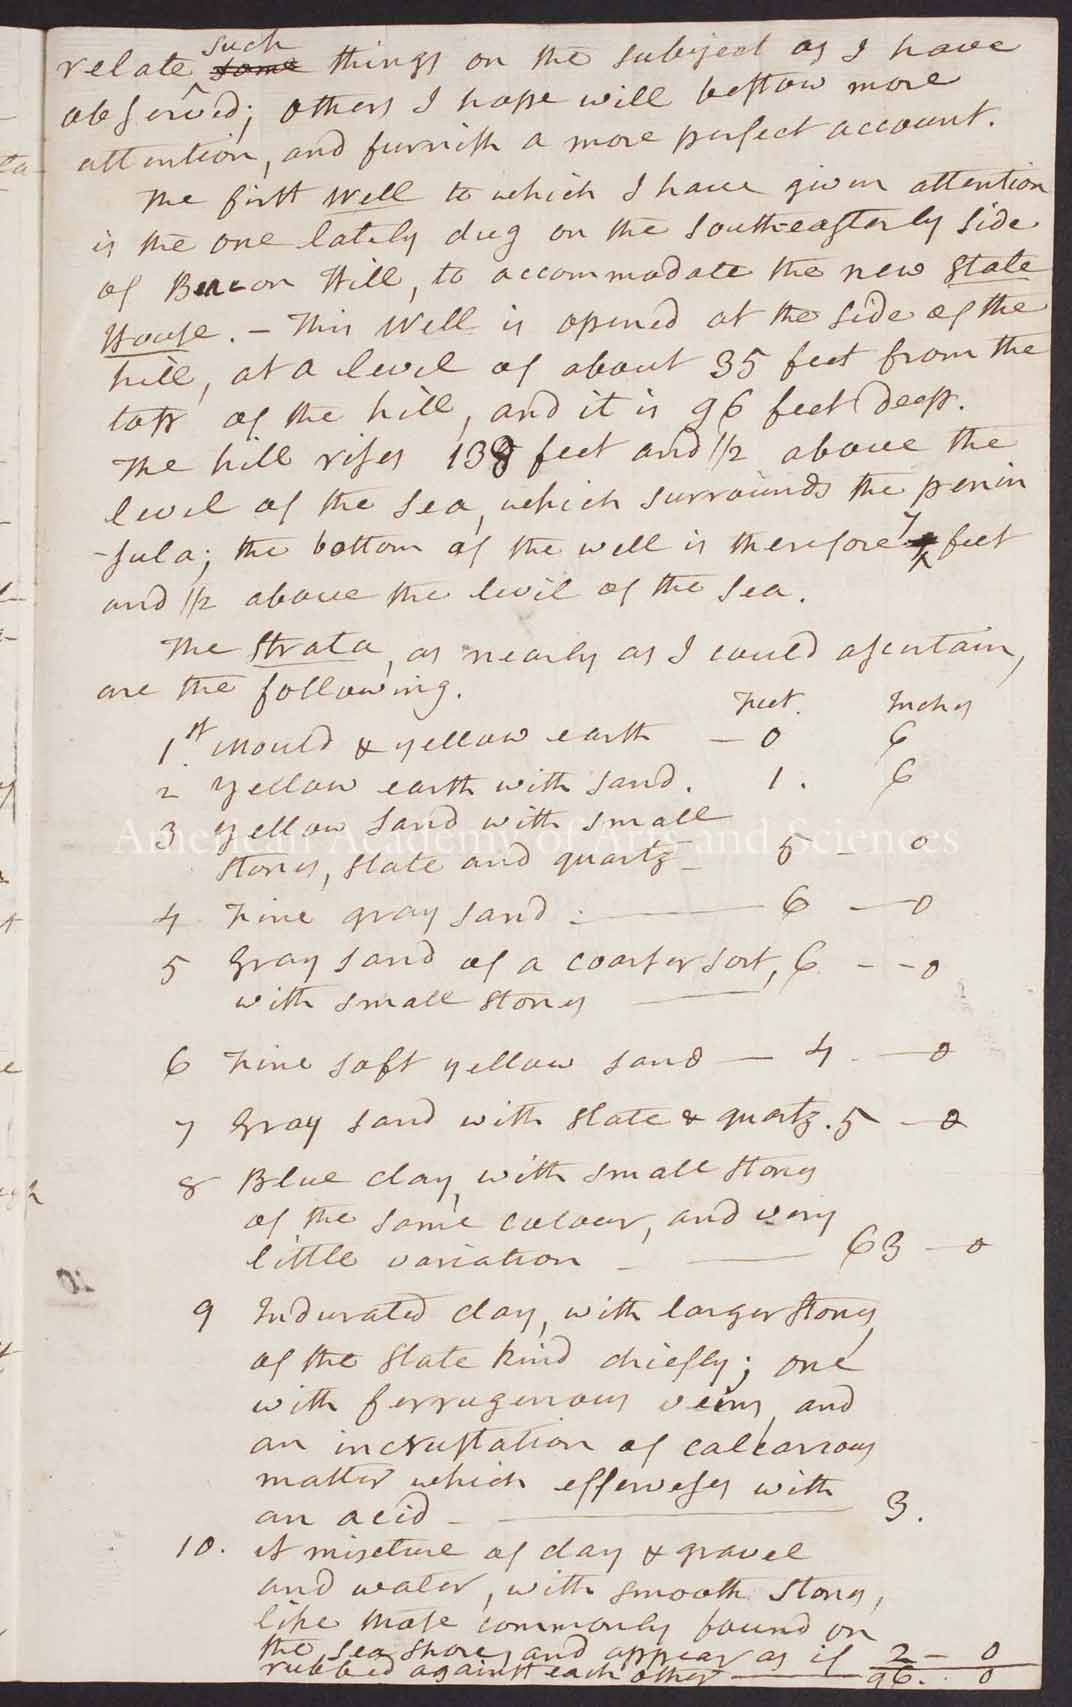 such
relate some things on the subject as I have
observed; others I hope will bestow more
attention, and furnish a more perfect account.
The first Well to which I have given attention
is the one lately dug on the South-easterly side
of Beacon Hill, to accommodate the new State
House. – This Well is opened at the side of the
hill, at a level of about 35 feet from the
top of the hill, and it is 96 feet deep.
The hill rises 138 feet and 1/2 above the
level of the sea, which surrounds the penin
-sula; the bottom of the well is therefore 7 feet
and 1/2 above the level of the sea.
The Strata, as nearly as I could ascertain,
are the following.
Feet. Inches
1st Mould & yellow earth – 0 6
2 Yellow earth with sand. 1. 6
3 Yellow sand with small
stones, slate and quartz – 5 – 0
American Academy of Arts and Sciences
4 Fine gray sand . — 6 – 0
5 Gray sand of a coarser sort, 6 – – 0
with small stones —
6 Fine soft yellow sand – 4. – 0
7 Gray sand with slate & quartz. 5 – 0
8 Blue clay, with small stones
of the same colour, and very
little variation – — 63 – 0
9 Indurated clay, with larger stones,
of the slate kind chiefly; one
with ferrugenous veins, and
an incrustation of calcarious
matter which efferveses with
an acid – — 3.
10. A mixture of clay & gravel
and water, with smooth stones,
like those commonly found on
the sea shore, and appear as if 2 – 0
rubbed against each other — 96. 0